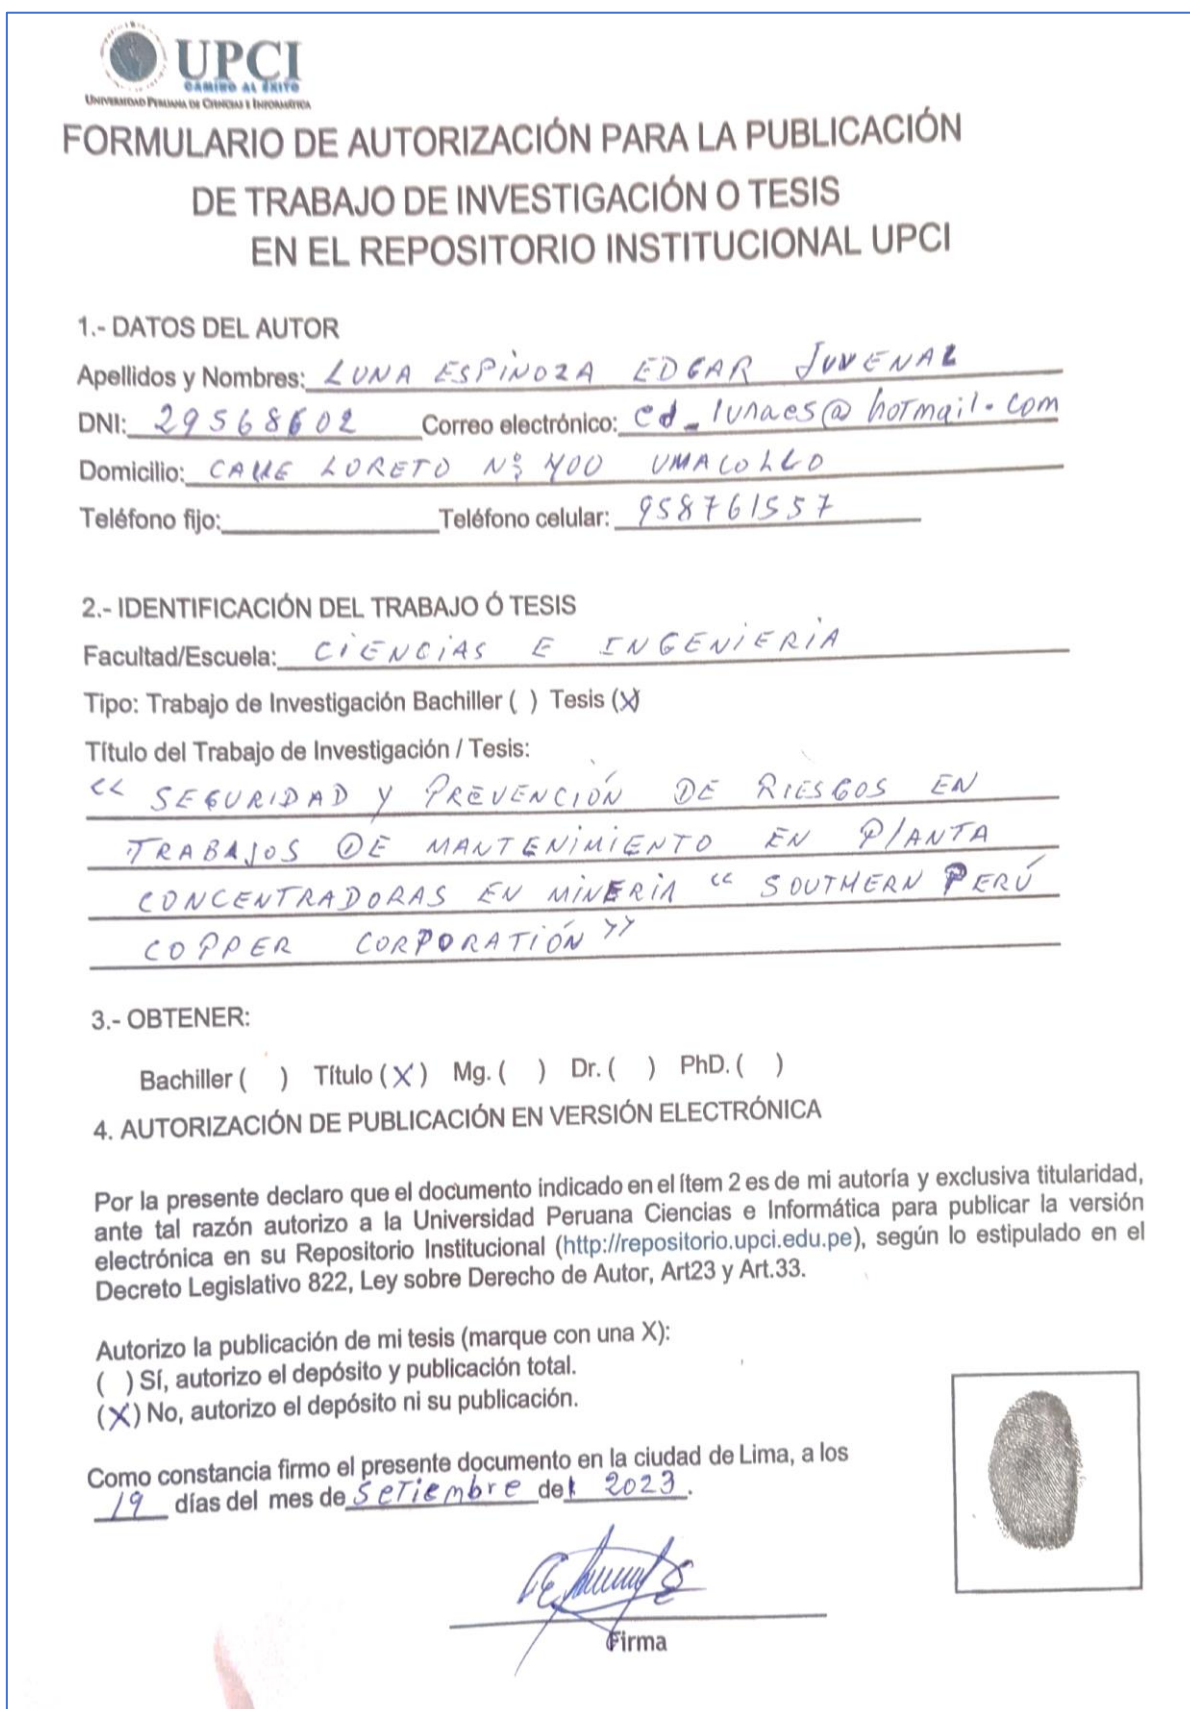 UPCI
CAMINO AL ÉXITO
UNIVERSIDAD PERUANA DE CIENCIAS E INFORMÁTICA
FORMULARIO DE AUTORIZACIÓN PARA LA PUBLICACIÓN
DE TRABAJO DE INVESTIGACIÓN O TESIS
EN EL REPOSITORIO INSTITUCIONAL UPCI
1.- DATOS DEL AUTOR
Apellidos y Nombres: LUNA ESPINOZA EDGAR JUVENAL
DNI: 29568602 Correo electrónico: ed_lunaes@hotmail.com
Domicilio: CALLE LORETO Nº 400 UMACOLLO
Teléfono fijo: Teléfono celular: 958761557
2.- IDENTIFICACIÓN DEL TRABAJO Ó TESIS
Facultad/Escuela: CIENCIAS E INGENIERIA
Tipo: Trabajo de Investigación Bachiller ( ) Tesis (X)
Título del Trabajo de Investigación / Tesis:
"SEGURIDAD Y PREVENCIÓN DE RIESGOS EN
TRABAJOS DE MANTENIMIENTO EN PLANTA
CONCENTRADORAS EN MINERIA "SOUTHERN PERÚ
COPPER CORPORATIÓN"
3.- OBTENER:
Bachiller ( ) Título (X) Mg. ( ) Dr. ( ) PhD. ( )
4. AUTORIZACIÓN DE PUBLICACIÓN EN VERSIÓN ELECTRÓNICA
Por la presente declaro que el documento indicado en el ítem 2 es de mi autoría y exclusiva titularidad,
ante tal razón autorizo a la Universidad Peruana Ciencias e Informática para publicar la versión
electrónica en su Repositorio Institucional (http://repositorio.upci.edu.pe), según lo estipulado en el
Decreto Legislativo 822, Ley sobre Derecho de Autor, Art23 y Art.33.
Autorizo la publicación de mi tesis (marque con una X):
( ) Sí, autorizo el depósito y publicación total.
(X) No, autorizo el depósito ni su publicación.
Como constancia firmo el presente documento en la ciudad de Lima, a los
19 días del mes de Setiembre del 2023.
Firma